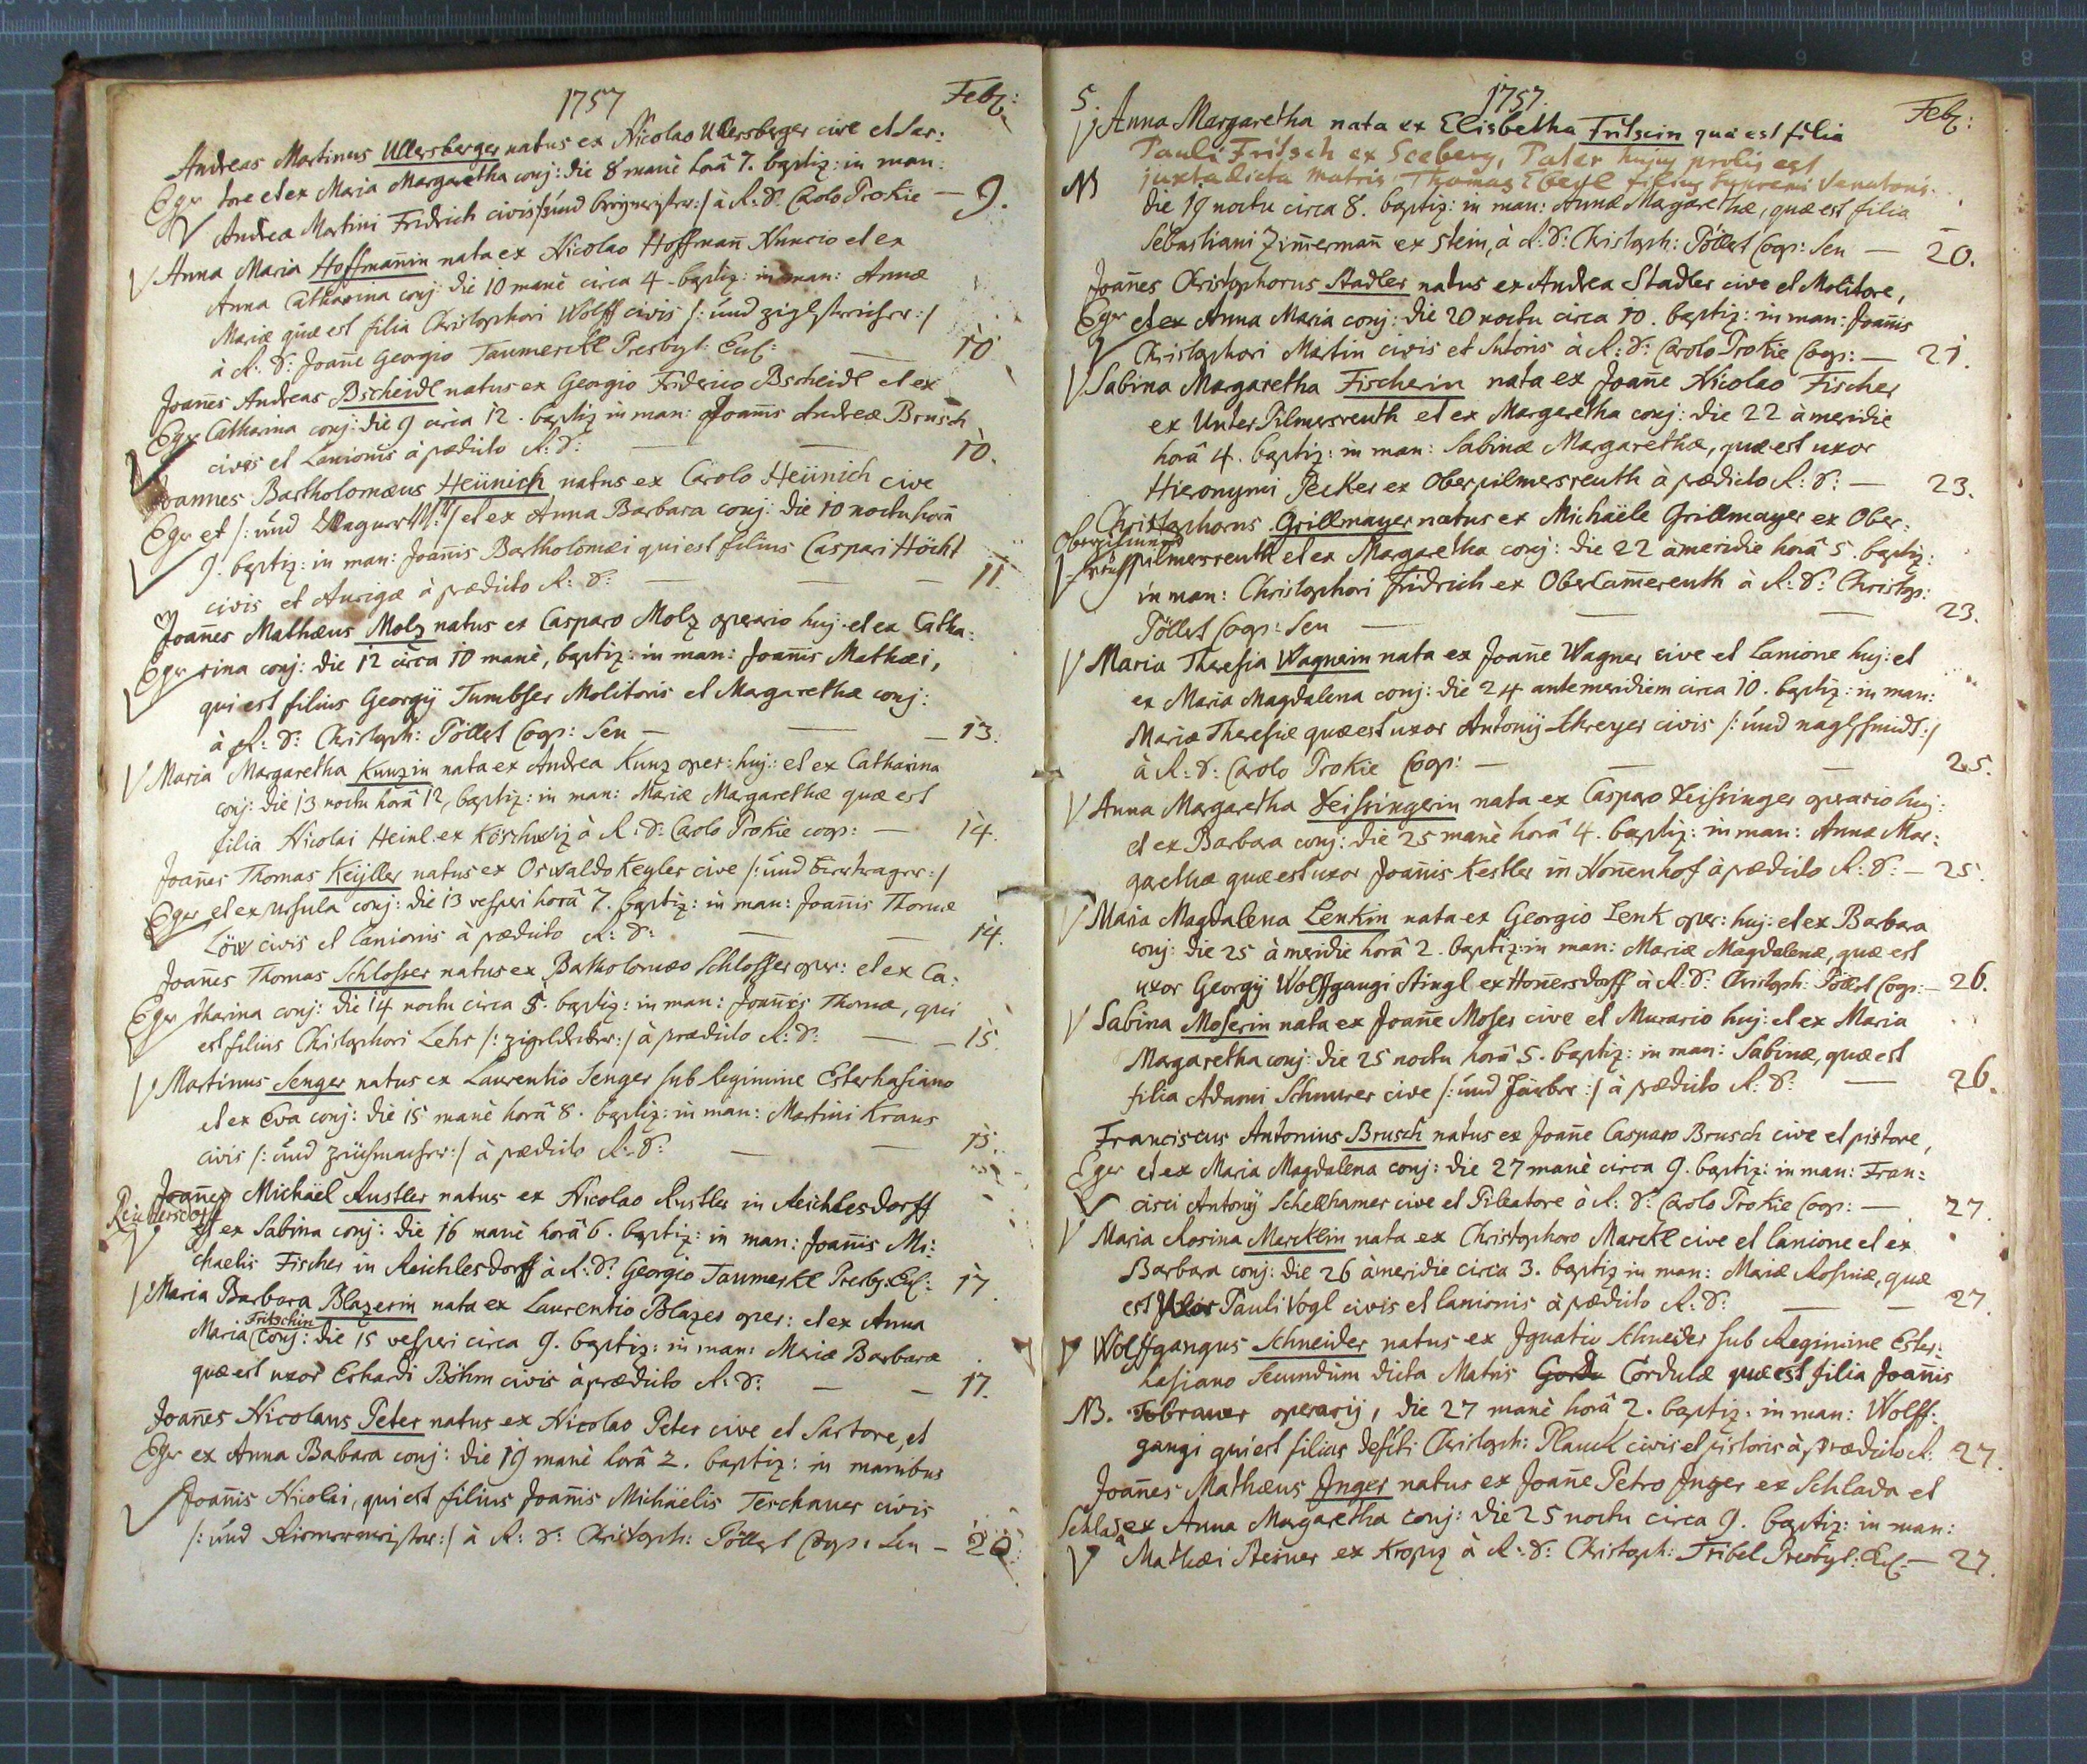 1757 Feb:
Andreas Martinus Ullersberger natus ex Nicolao Ullersberger cive et Sar:
Eger tore et ex Maria Margaretha conj: die 8 manè horâ 7. baptiz: in man:
Andreæ Martini Fridrich civis /: und :/ à R: D: Carolo Prokie — 9.
Anna Maria Hoffmañin nata ex Nicolao Hoffmañ Nuncio et ex
Anna Catharina conj: die 10 manè circa 4 baptiz: in man: Annæ
Mariæ quæ est filia Christophori Wolff civis /: und zieglstreicher :/
à R: D: Joañe Georgio Taumerckl Presbyt: Eccl: — 10
Joañes Andreas Bscheidl natus ex Georgio Friderico Bscheidl et ex
Eger Catharina conj: die 9 circa 12. baptiz in man: Joañis Andreæ Brusch
civis et Lanionis à prædicto R: D: — — 10.
Joannes Bartholomæus Heünich natus ex Carolo Heünich cive
Eger et /: und Wagner :/ et ex Anna Barbara conj: die 10 noctu horâ
9. baptiz: in man: Joañis Bartholomæi qui est filius Caspari Höcht
civis et Aurigæ à prædicto R: D: — — — 11.
Joañes Mathæus Molz natus ex Casparo Molz operario huj: et ex Catha:
Eger rina conj: die 12 circa 10 manè, baptiz: in man: Joañis Mathæi,
qui est filius Georgij Tumbser Molitoris et Margarethæ conj:
à R: D: Christoph: Pöllet Coop: Sen — — — 13.
Maria Margaretha Kunzin nata ex Andrea Kunz oper: huj: et ex Catharina
conj: die 13 noctu horâ 12, baptiz: in man: Mariæ Margarethæ quæ est
filia Nicolai Heinl ex à R: D: Carolo Prokie coop: — 14.
Joañes Thomas Keyller natus ex Oswaldo Keyler cive /: und biertrager :/
Eger et ex Ursula conj: die 13 vesperi horâ 7. baptiz: in man: Joañis Thomæ
Löw civis et Lanionis à prædicto R: D: — — 14.
Joañes Thomas Schlosser natus ex Bartholomæo Schlosser oper: et ex Ca:
Eger tharina conj: die 14 noctu circa 8. baptiz: in man: Joañis Thomæ, qui
est filius Christophori Lehr /: zigeldecker :/ à prædicto R: D: — — 15.
Martinus Senger natus ex Laurentio Senger sub Regimine Esterhasiano
et ex Eva conj: die 15 manè horâ 8. baptiz: in man: Martini Kraus
civis /: und zeüchmacher :/ à prædicto R: D: — — 15.
Joañes Michäel Rustler natus ex Nicolao Rustler in Reichlesdorff
Reichlersdorf et ex Sabina conj: die 16 manè horâ 6. baptiz: in man: Joañis Mi:
chaelis Fischer in Reichlesdorff à R: D: Georgio Taumerkl Presby: Eccl: 17.
Maria Barbara Blazerin nata ex Laurentio Blazer oper: et ex Anna
Fritschin
Maria conj: die 15 vesperi circa 9. baptiz: in man: Mariæ Barbaræ
quæ est uxor Erhardi Böhm civis à prædicto R: D: — — 17.
Joañes Nicolaus Peter natus ex Nicolao Peter cive et Sartore, et
Eger ex Anna Babara conj: die 19 manè horâ 2. baptiz: in manibus
Joañis Nicolai, qui est filius Joañis Michäelis Teschauer civis
/: und Riemermeister :/ à R: D: Christoph: Pöllet Coop: Sen — 20.
5. 1757. Feb:
Anna Margaretha nata ex Elisbetha Fritscin quæ est filia
Pauli Fritsch ex Seeberg, Pater hujus prolis est
NB juxta dicta matris Thomas Eberl filius supremi Venatoris.
die 19 noctu circa 8. baptiz: in man: Annæ Margarethæ, quæ est filia
Sebastiani Zim̃ermañ ex Stein, à R: D: Christoph: Pöllet Coop: Sen — 20.
Joañes Christophorus Stadler natus ex Andrea Stadler cive et Molitore,
Eger et ex Anna Maria conj: die 20 noctu circa 10. baptiz: in man: Joañis
Christophori Martin civis et Sutoris à R: D: Carolo Prokie Coop: — 21.
Sabina Margaretha Fischerin nata ex Joañe Nicolao Fischer
ex Unter Pilmersreuth et ex Margaretha conj: die 22 à meridie
horâ 4. baptiz: in man: Sabinæ Margarethæ, quæ est uxor
Hieronymi Pecker ex Oberpilmersreuth à prædicto R: D: — 23.
Christophorus Grillmayer natus ex Michäele Grillmayer ex Ober:
Oberpilmersreuth pilmersreuth et ex Margaretha conj: die 22 à meridie horâ 5. baptiz:
in man: Christophori Fridrich ex Obercam̃erenth à R: D: Christop:
Pöllet Coop: Sen — — — 23.
Maria Theresia Wagnerin nata ex Joañe Wagner cive et Lanione huj: et
ex Maria Magdalena conj: die 24 ante meridiem circa 10. baptiz: in man:
Mariæ Theresiæ quæ est uxor Antonij Schreyer civis /: und naglschmidt :/
à R: D: Carolo Prokie Coop: — — — 25.
Anna Margaretha Zeissingerin nata ex Casparo Zeissinger operario huj:
et ex Barbara conj: die 25 manè horâ 4. baptiz: in man: Annæ Mar:
garethæ quæ est uxor Joañis Kestler in Noñenhof à prædicto R: D: — 25.
Maria Magdalena Lenkin nata ex Georgio Lenk oper: huj: et ex Barbara
conj: die 25 à meridie horâ 2. baptiz: in man: Mariæ Magdalenæ, quæ est
uxor Georgij Wolffgangi Stingl ex Honersdorff à R: D: Christoph: Pöllet Coop: — 26.
Sabina Moserin nata ex Joañe Moser cive et Murario huj: et ex Maria
Margaretha conj: die 25 noctu horâ 5. baptiz: in man: Sabinæ, quæ est
filia Adami Schnurer cive /: und Färber :/ à prædicto R: D: — 26.
Franciscus Antonius Brusch natus ex Joañe Casparo Brusch cive et pistore,
Eger et ex Maria Magdalena conj: die 27 manè circa 9. baptiz: in man: Fran:
cisci Antonij Schellhamer cive et Pileatore à R: D: Carolo Prokie Coop: — 27.
Maria Rosina Mercklin nata ex Christophoro Marckl cive et lanione et ex
Barbara conj: die 26 à meridie circa 3. baptiz in man: Mariæ Rosinæ, quæ
est Uxor Pauli Vogl civis et lanionis à prædicto R: D: — — 27.
Wolffgangus Schneider natus ex Ignatio Schneider sub Regimine Ester:
hasiano secundum dicta Matris Cordulæ quæ est filia Joañis
NB. Tobrauer operarij, die 27 manè horâ 2. baptiz: in man: Wolff:
gangi qui est filius defũti Christoph: Planck civis et pistoris à prædicto R: 27.
Joañes Mathæus Inger natus ex Joañe Petro Inger ex Schlada et
Schlada ex Anna Margaretha conj: die 25 noctu circa 9. baptiz: in man:
Mathæi Steiner ex Kropiz à R: D: Christoph: Fribel Presbyt: Eccl: — 27.